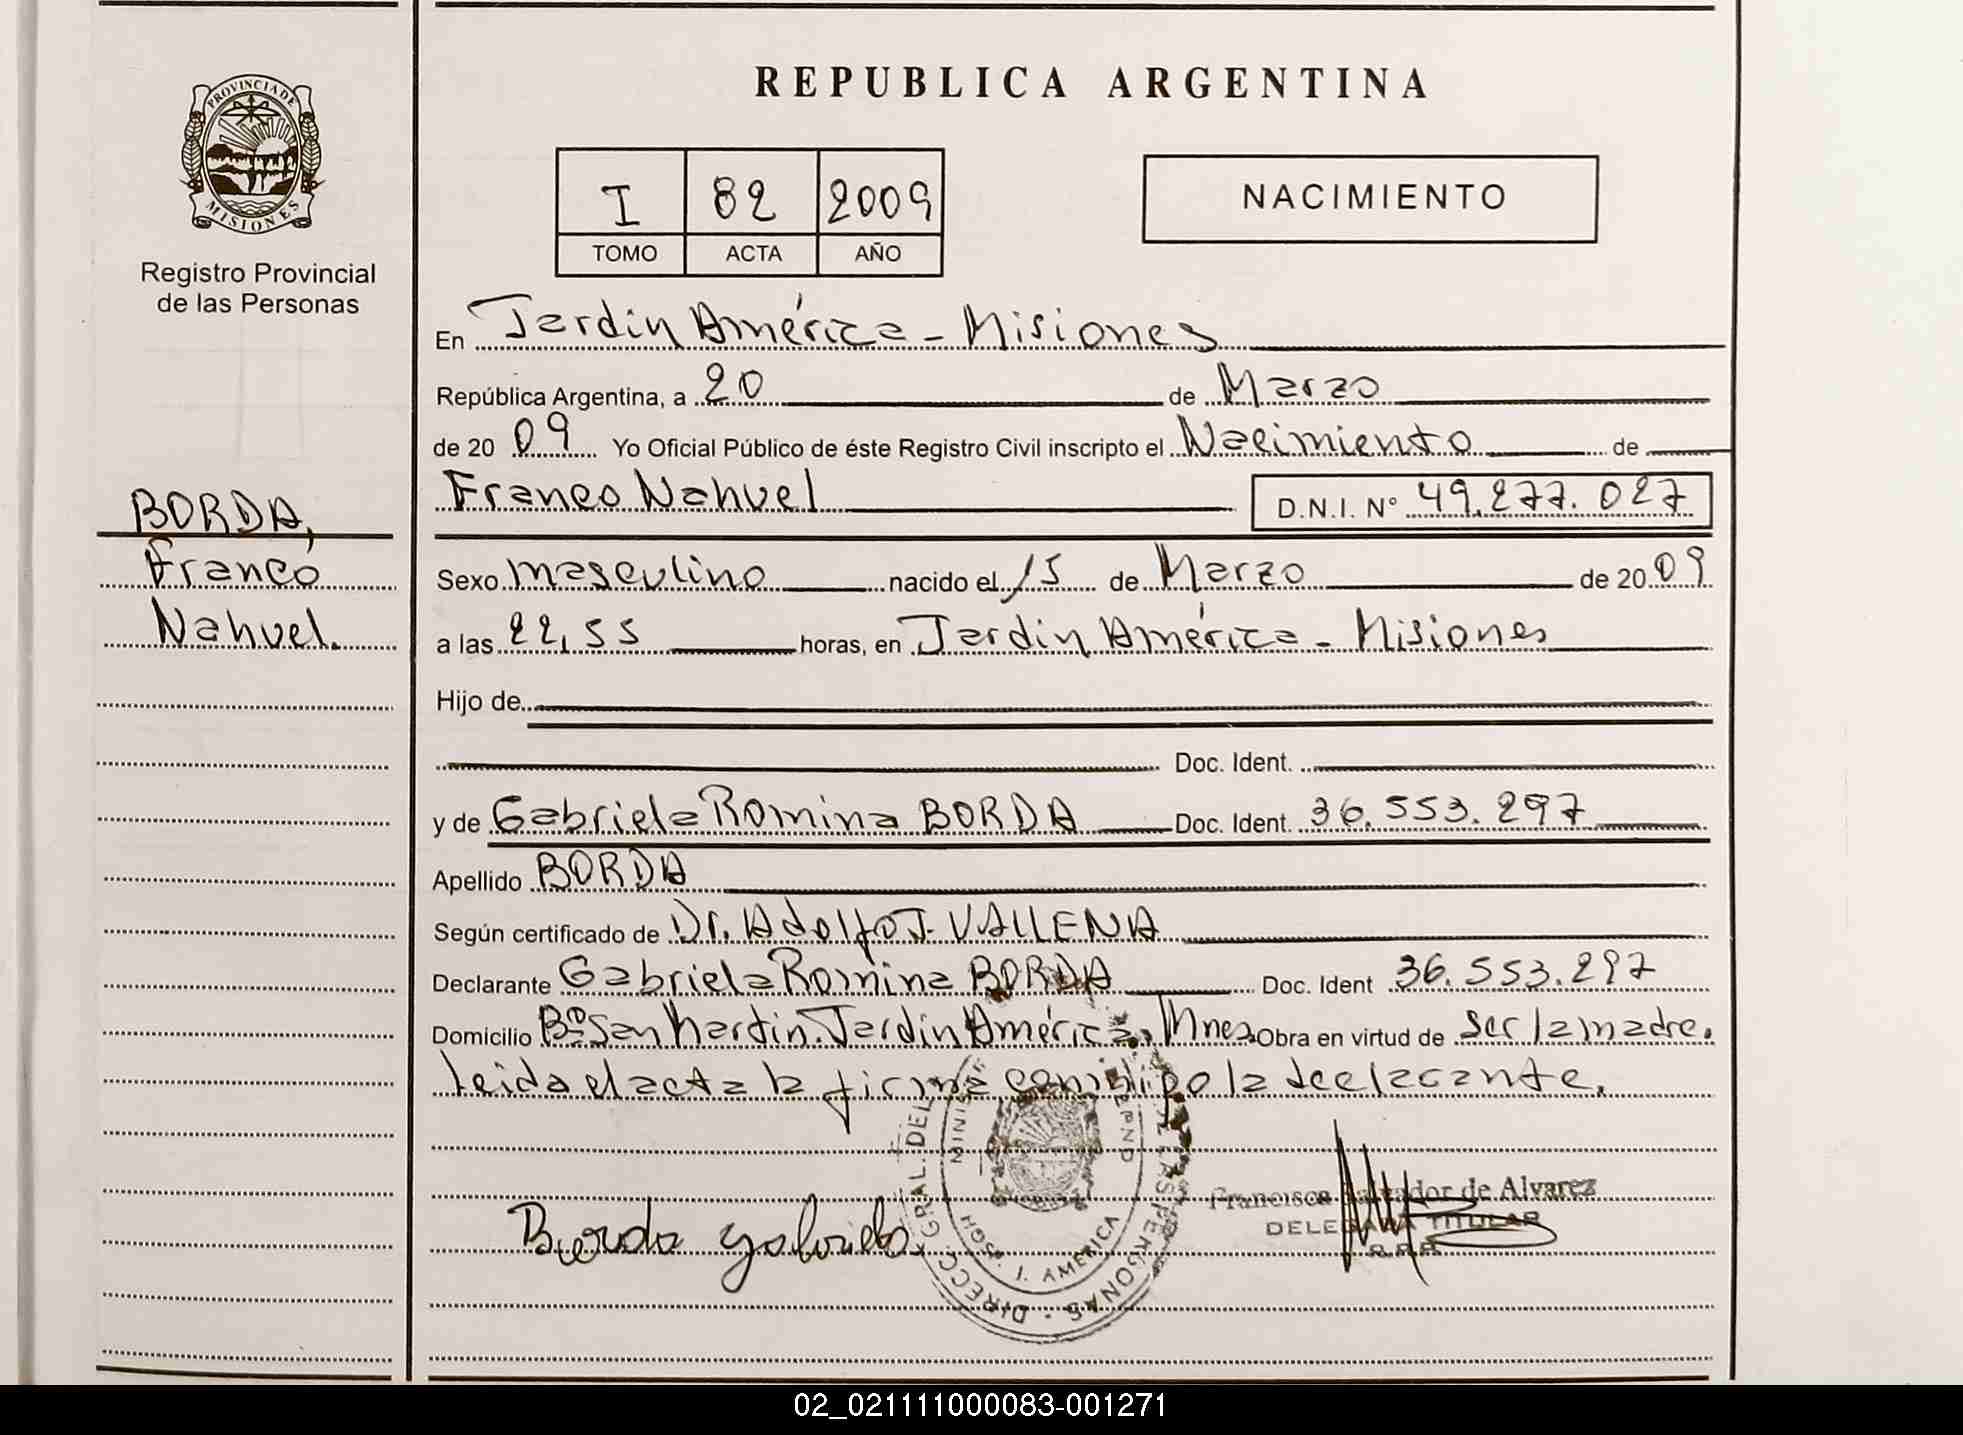 REPUBLICA ARGENTINA
PROVINCIA DE
MISIONES
Registro Provincial
de las Personas
I 82 2009
TOMO ACTA AÑO
NACIMIENTO
En Jardin América - Misiones
República Argentina, a 20 de Marzo
de 20 09 Yo Oficial Público de éste Registro Civil inscripto el Nacimiento de
Franco Nahuel D.N.I. Nº 49.277.027
BORDA,
Franco
Nahuel.
Sexo masculino nacido el 15 de Marzo de 20 09
a las 22,55 horas, en Jardin América - Misiones
Hijo de
Doc. Ident.
y de Gabriela Romina BORDA Doc. Ident. 36.553.297
Apellido BORDA
Según certificado de Dr. Adolfo J. VALLENA
Declarante Gabriela Romina BORDA Doc. Ident 36.553.297
Domicilio Bº San Martin. Jardin América, Mnes. Obra en virtud de ser la madre.
Leida el acta la firma conmigo la declarante.
Borda Gabriela
DIRECC. GRAL. DEL LAS PERSONAS
J. AMERICA
Francisca Salvador de Alvarez
DELEGADA TITULAR
02_021111000083-001271